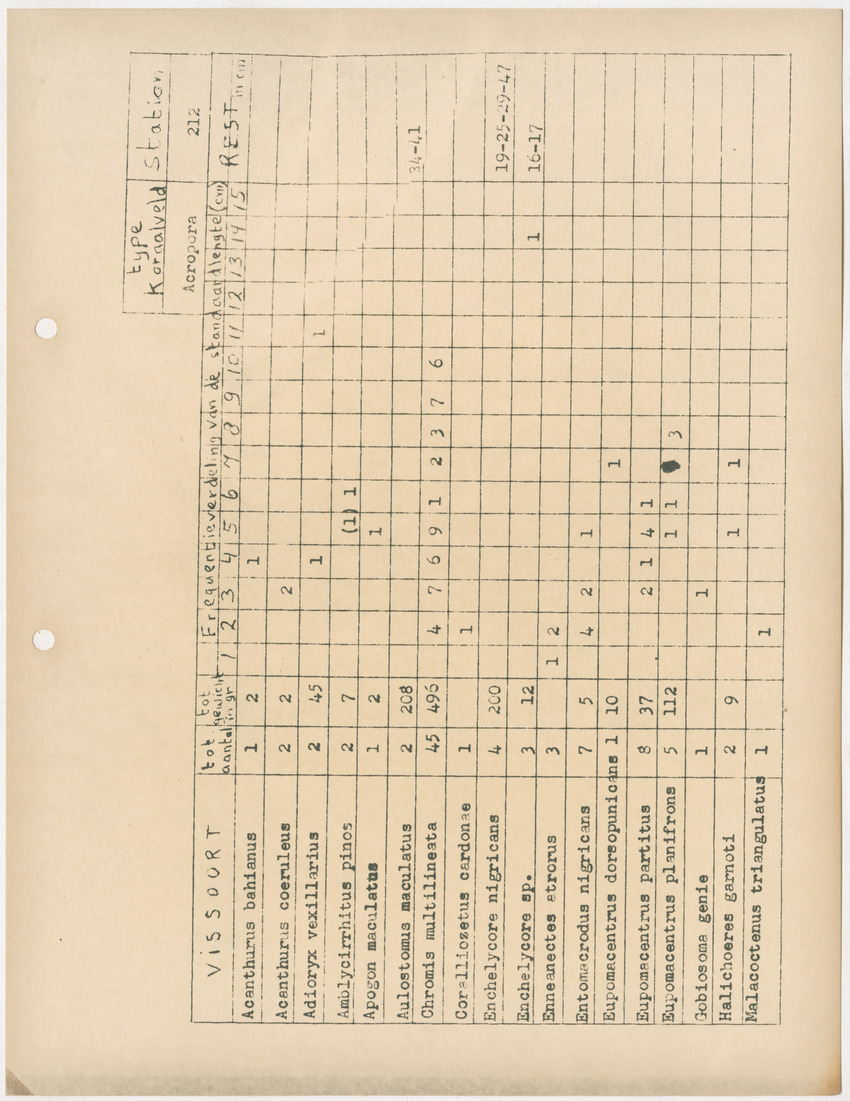 type Koraalveld Station
Acropora 212
VISSOORT tot. aantal tot gewicht in gr Frequentieverdeling van de standaardlengte (cm)
1 2 3 4 5 6 7 8 9 10 11 12 13 14 15 REST in cm
Acanthurus bahianus 1 2 1
Acanthurus coeruleus 2 2 2
Adioryx vexillarius 2 45 1 1
Amblycirrhitus pinos 2 7 (1) 1
Apogon maculatus 1 2 1
Aulostomus maculatus 2 208 34-41
Chromis multilineata 45 496 4 7 6 9 1 2 3 7 6
Coralliozetus cardonae 1 1
Enchelycore nigricans 4 200 19-25-29-47
Enchelycore sp. 3 12 1 16-17
Enneanectes atrorus 3 1 2
Entomacrodus nigricans 7 5 4 2 1
Eupomacentrus dorsopunicans 1 10 1
Eupomacentrus partitus 8 37 2 1 4 1
Eupomacentrus planifrons 5 112 1 1 3
Gobiosoma genie 1 1
Halichoeres garnoti 2 9 1 1
Malacoctenus triangulatus 1 1